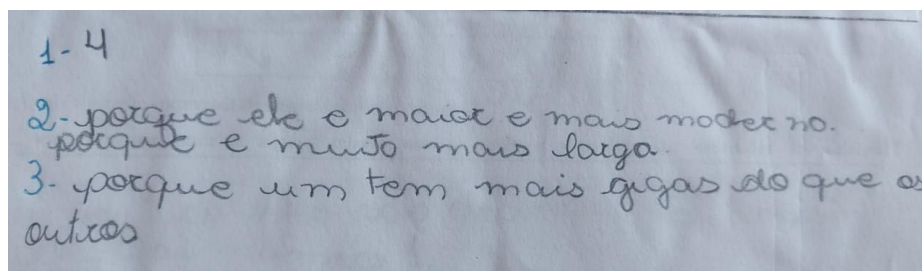 1- 4
2- porque ele e maior e mais moderno.
porque e muito mais larga.
3- porque um tem mais gigas do que os
outros